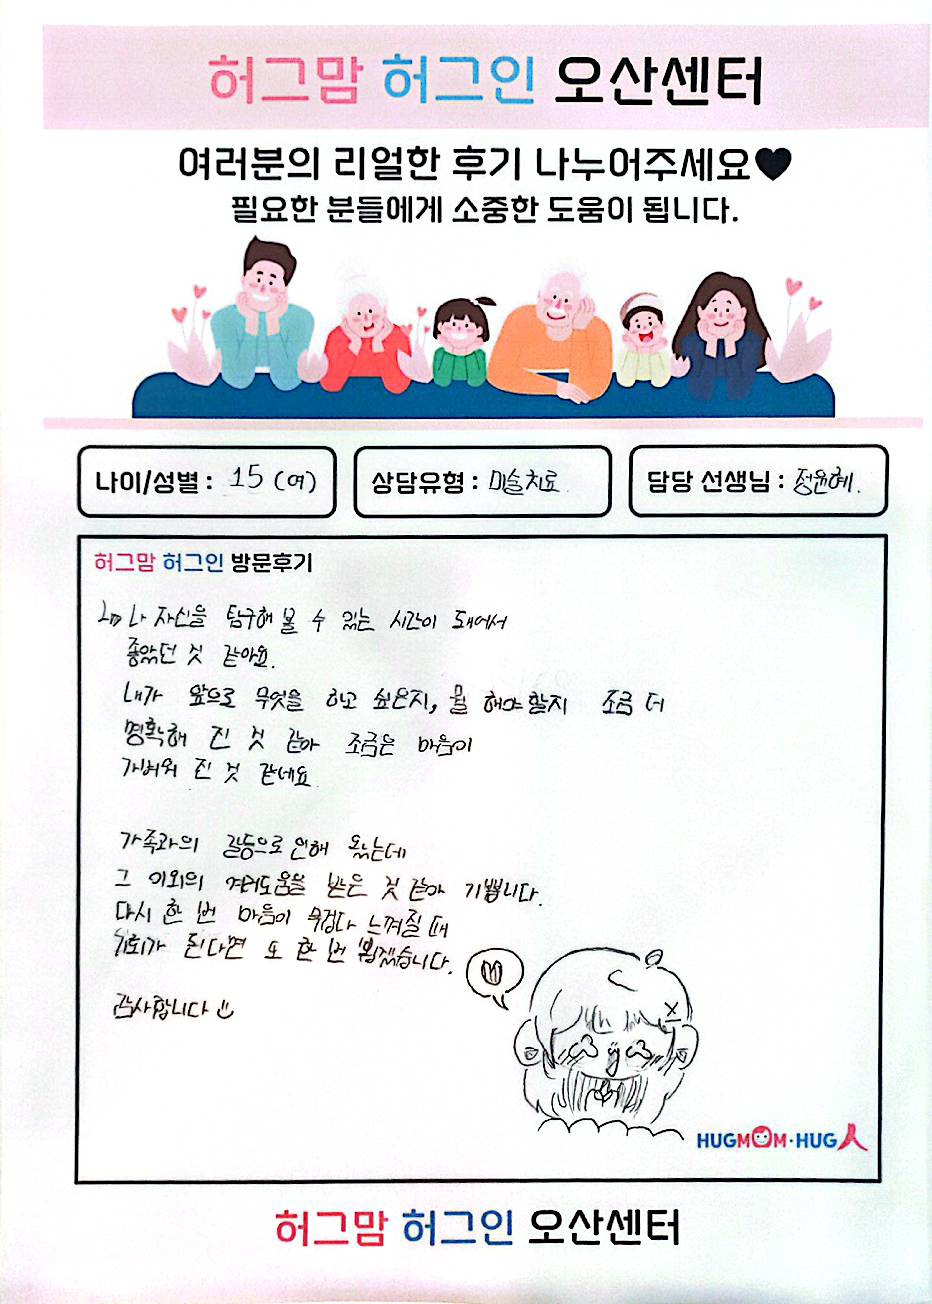 허그맘 허그인 오산센터
여러분의 리얼한 후기 나누어주세요♥
필요한 분들에게 소중한 도움이 됩니다.
나이/성별 : 15 (여)
상담유형 : 미술치료
담당 선생님 : 정윤혜.
허그맘 허그인 방문후기
나 자신을 탐구해 볼 수 있는 시간이 돼어서
좋았던 것 같아요.
내가 앞으로 무엇을 하고 싶은지, 뭘 해야 할지 조금 더
명확해 진 것 같아 조금은 마음이
가벼워 진 것 같네요.
가족과의 갈등으로 인해 왔는데
그 이외의 여러도움을 받은 것 같아 기쁩니다.
다시 한 번 마음이 무겁다 느껴질 때
기회가 된다면 또 한 번 뵙겠습니다.
감사합니다
HUGMOM·HUG人
허그맘 허그인 오산센터